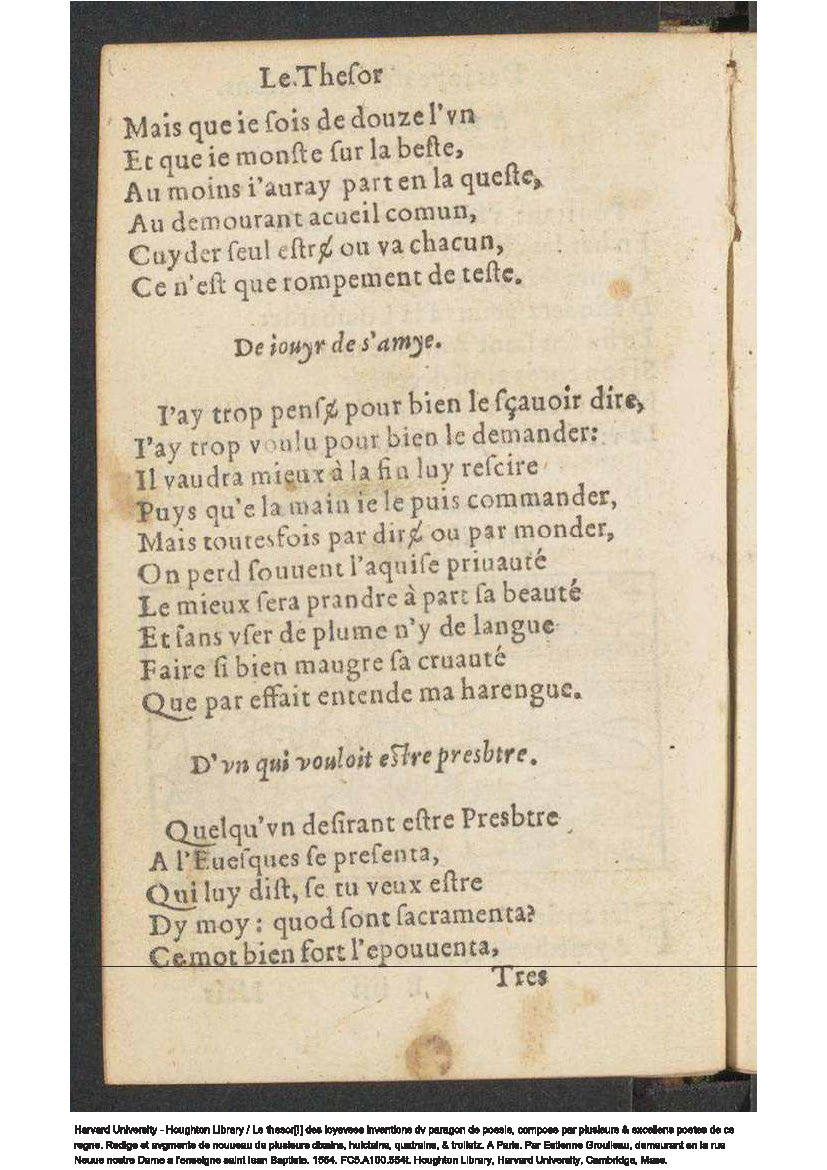 Le.Theſor
Mais que ie ſois de douze l'vn
Et que ie monſte ſur la beſte,
Au moins i'auray part en la queſte,
Au demourant acueil comun,
Cuyder ſeul eſtrɇ ou va chacun,
Ce n'eſt que rompement de teſte.
De iouyr de s'amye.
I'ay trop penſɇ pour bien le ſçauoir dire,
I'ay trop voulu pour bien le demander:
Il vaudra mieux à la fin luy reſcire
Puys qu'e la main ie le puis commander,
Mais toutesfois par dirɇ ou par monder,
On perd ſouuent l'aquiſe priuauté
Le mieux ſera prandre à part ſa beauté
Et ſans vſer de plume n'y de langue
Faire ſi bien maugre ſa cruauté
Que par effait entende ma harengue.
D'vn qui vouloit eſtre presbtre.
Quelqu'vn deſirant eſtre Presbtre
A l'Eueſques ſe preſenta,
Qui luy diſt, ſe tu veux eſtre
Dy moy: quod ſont ſacramenta?
Ce mot bien fort l'epouuenta,
Tres
Harvard University - Houghton Library / Le thesor[i] des ioyevses inventions dv paragon de poesie, compose par plusieurs & excellens poetes de ce
regne. Redige et avgmente de nouueau de plusieurs dixains, huictains, quatrains, & trolletz. A Paris. Par Estienne Groulleau, demeurant en la rue
Neuue nostre Dame a l'enseigne saint Iean Baptiste. 1554. FC5.A100.554t. Houghton Library, Harvard University, Cambridge, Mass.